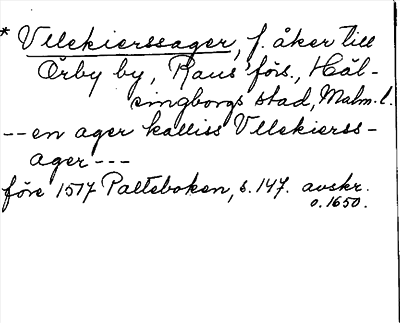 * Vllekierssager, f. åker till
Örby by, Raus' förs., Häl-
singborgs stad, Malm. l.
-- en ager kalliss Vllekierss-
ager ---
före 1517 Palteboken, s. 147. avskr.
o. 1650.